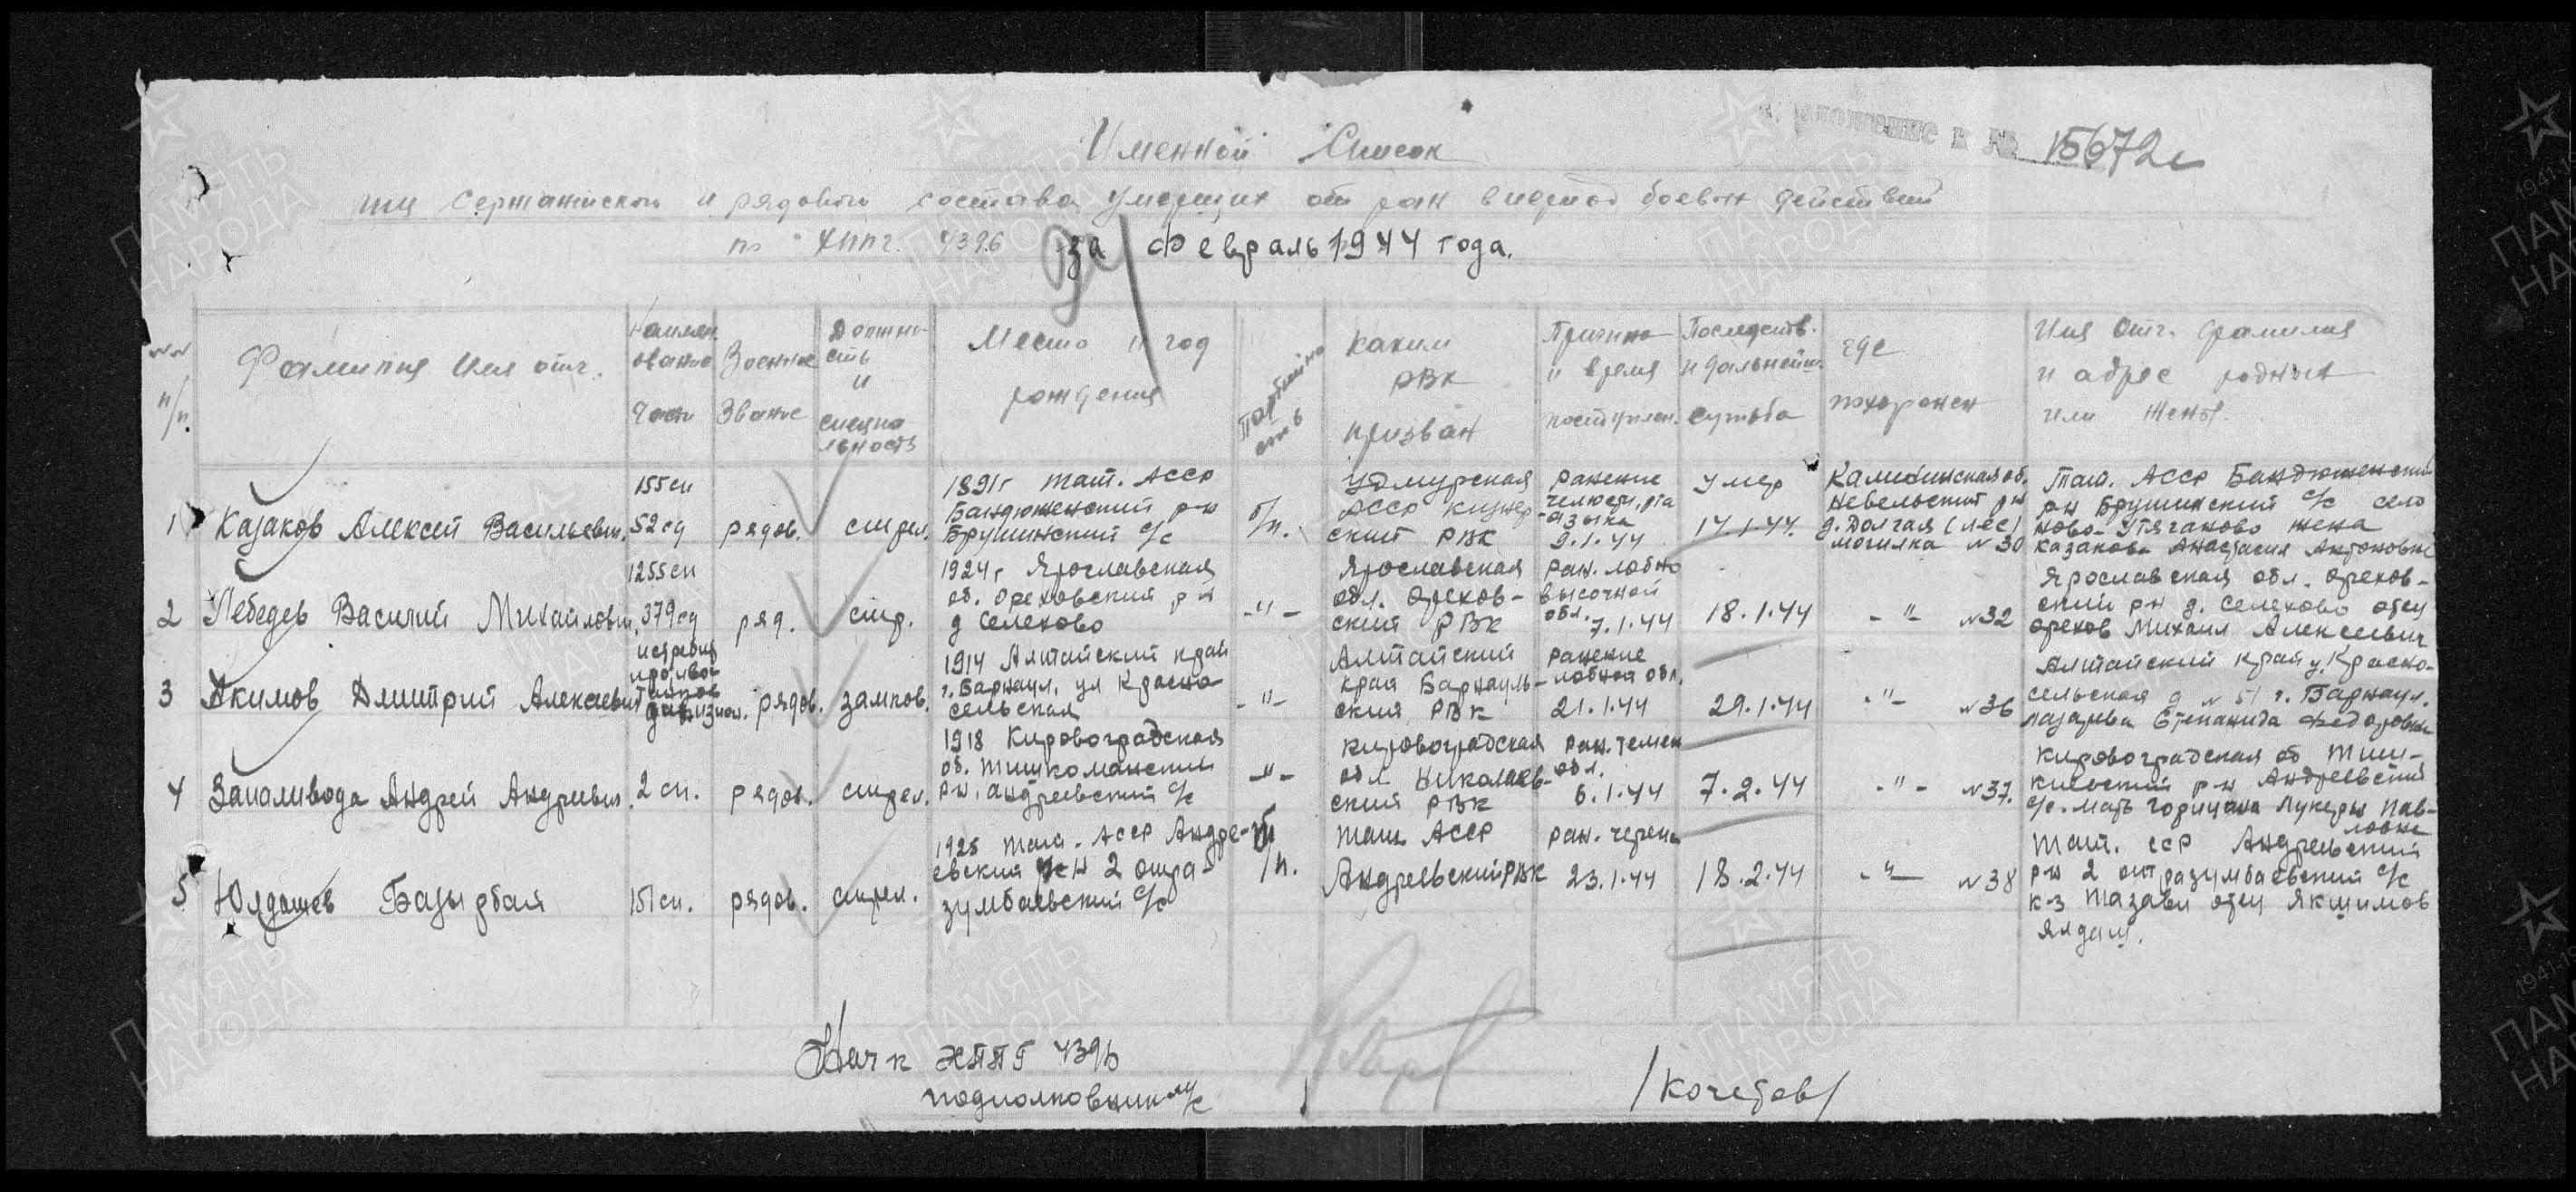 Именной Список
приложение к № 15672с
сержантского и рядового состава умерших от ран в период боевых действий
по ХППГ 4396 за февраль 1944 года.
№№ п/п.
Фамилия Имя отч.
Наимен ование части
Военное Звание
Должность и специальность
Место и год рождения
Партийность
каким РВК призван
Причина и время поступлен.
Последств. и дальнейш. судьба
где похоронен
Имя Отч. фамилия и адрес родных или жены.
1 Казаков Алексей Васильевич. 155сп 52сд рядов. стрел.
1891г Тат. АССР Бандюженский р-н Брушинский с/с
б/п.
Удмурская АССР Кизнерский РВК
ранение челюсти, рта языка 9.1.44
умер 17.1.44.
Калининская об. Невельский рн д. Долгая (лес) могилка №30
Тат. АССР Бандюженский рн Брушинский с/с село Ново-Утяганово жена Казакова Анастасия Антоновна
2 Лебедев Василий Михайлович. 1255сп 379сд ряд. стр.
1924г Ярославская об. Ореховский р-н д Селехово
-"-
Ярославская обл. Ореховский РВК
ран. лобно височной обл. 7.1.44
18.1.44
-"- №32
Ярославская обл. Ореховский рн д. Селехово отец Орехов Михаил Алексеевич
3 Акимов Дмитрий Алексеевич рядов. замков.
1914 Алтайский край г. Барнаул. ул Красносельская
-"-
Алтайский края Барнаульский РВК
ранение лобной обл. 21.1.44
29.1.44
-"- №36
Алтайский край у. Красносельская д №51 г. Барнаул. Лазарева Степанида Федоровна
4 Запаливода Андрей Андреевич. 2 сп. рядов. стрел.
1918 Кировоградская об. Тишкоманский р-н. Андреевский с/с
-"-
Кировоградская обл Николаевский РВК
ран. темен обл. 6.1.44
7.2.44
-"- №37.
Кировоградская об р-н Андреевский с/с. мать Лукерья Павловна
5 Юлдашев Базырбая 151сп. рядов. стрел.
1925 Таш. АССР Андреевский р-н 2 зумбаевский с/с
б/п.
Таш. АССР Андреевский РВК
ран. черепа 23.1.44
18.2.44
-"- №38
Таш. ССР Андреевский р-н 2 с/с к-з Тазави отец Якшимов Ялдаш.
Нач-к ХППГ 4396
подполковник м/с
/Кочетов/